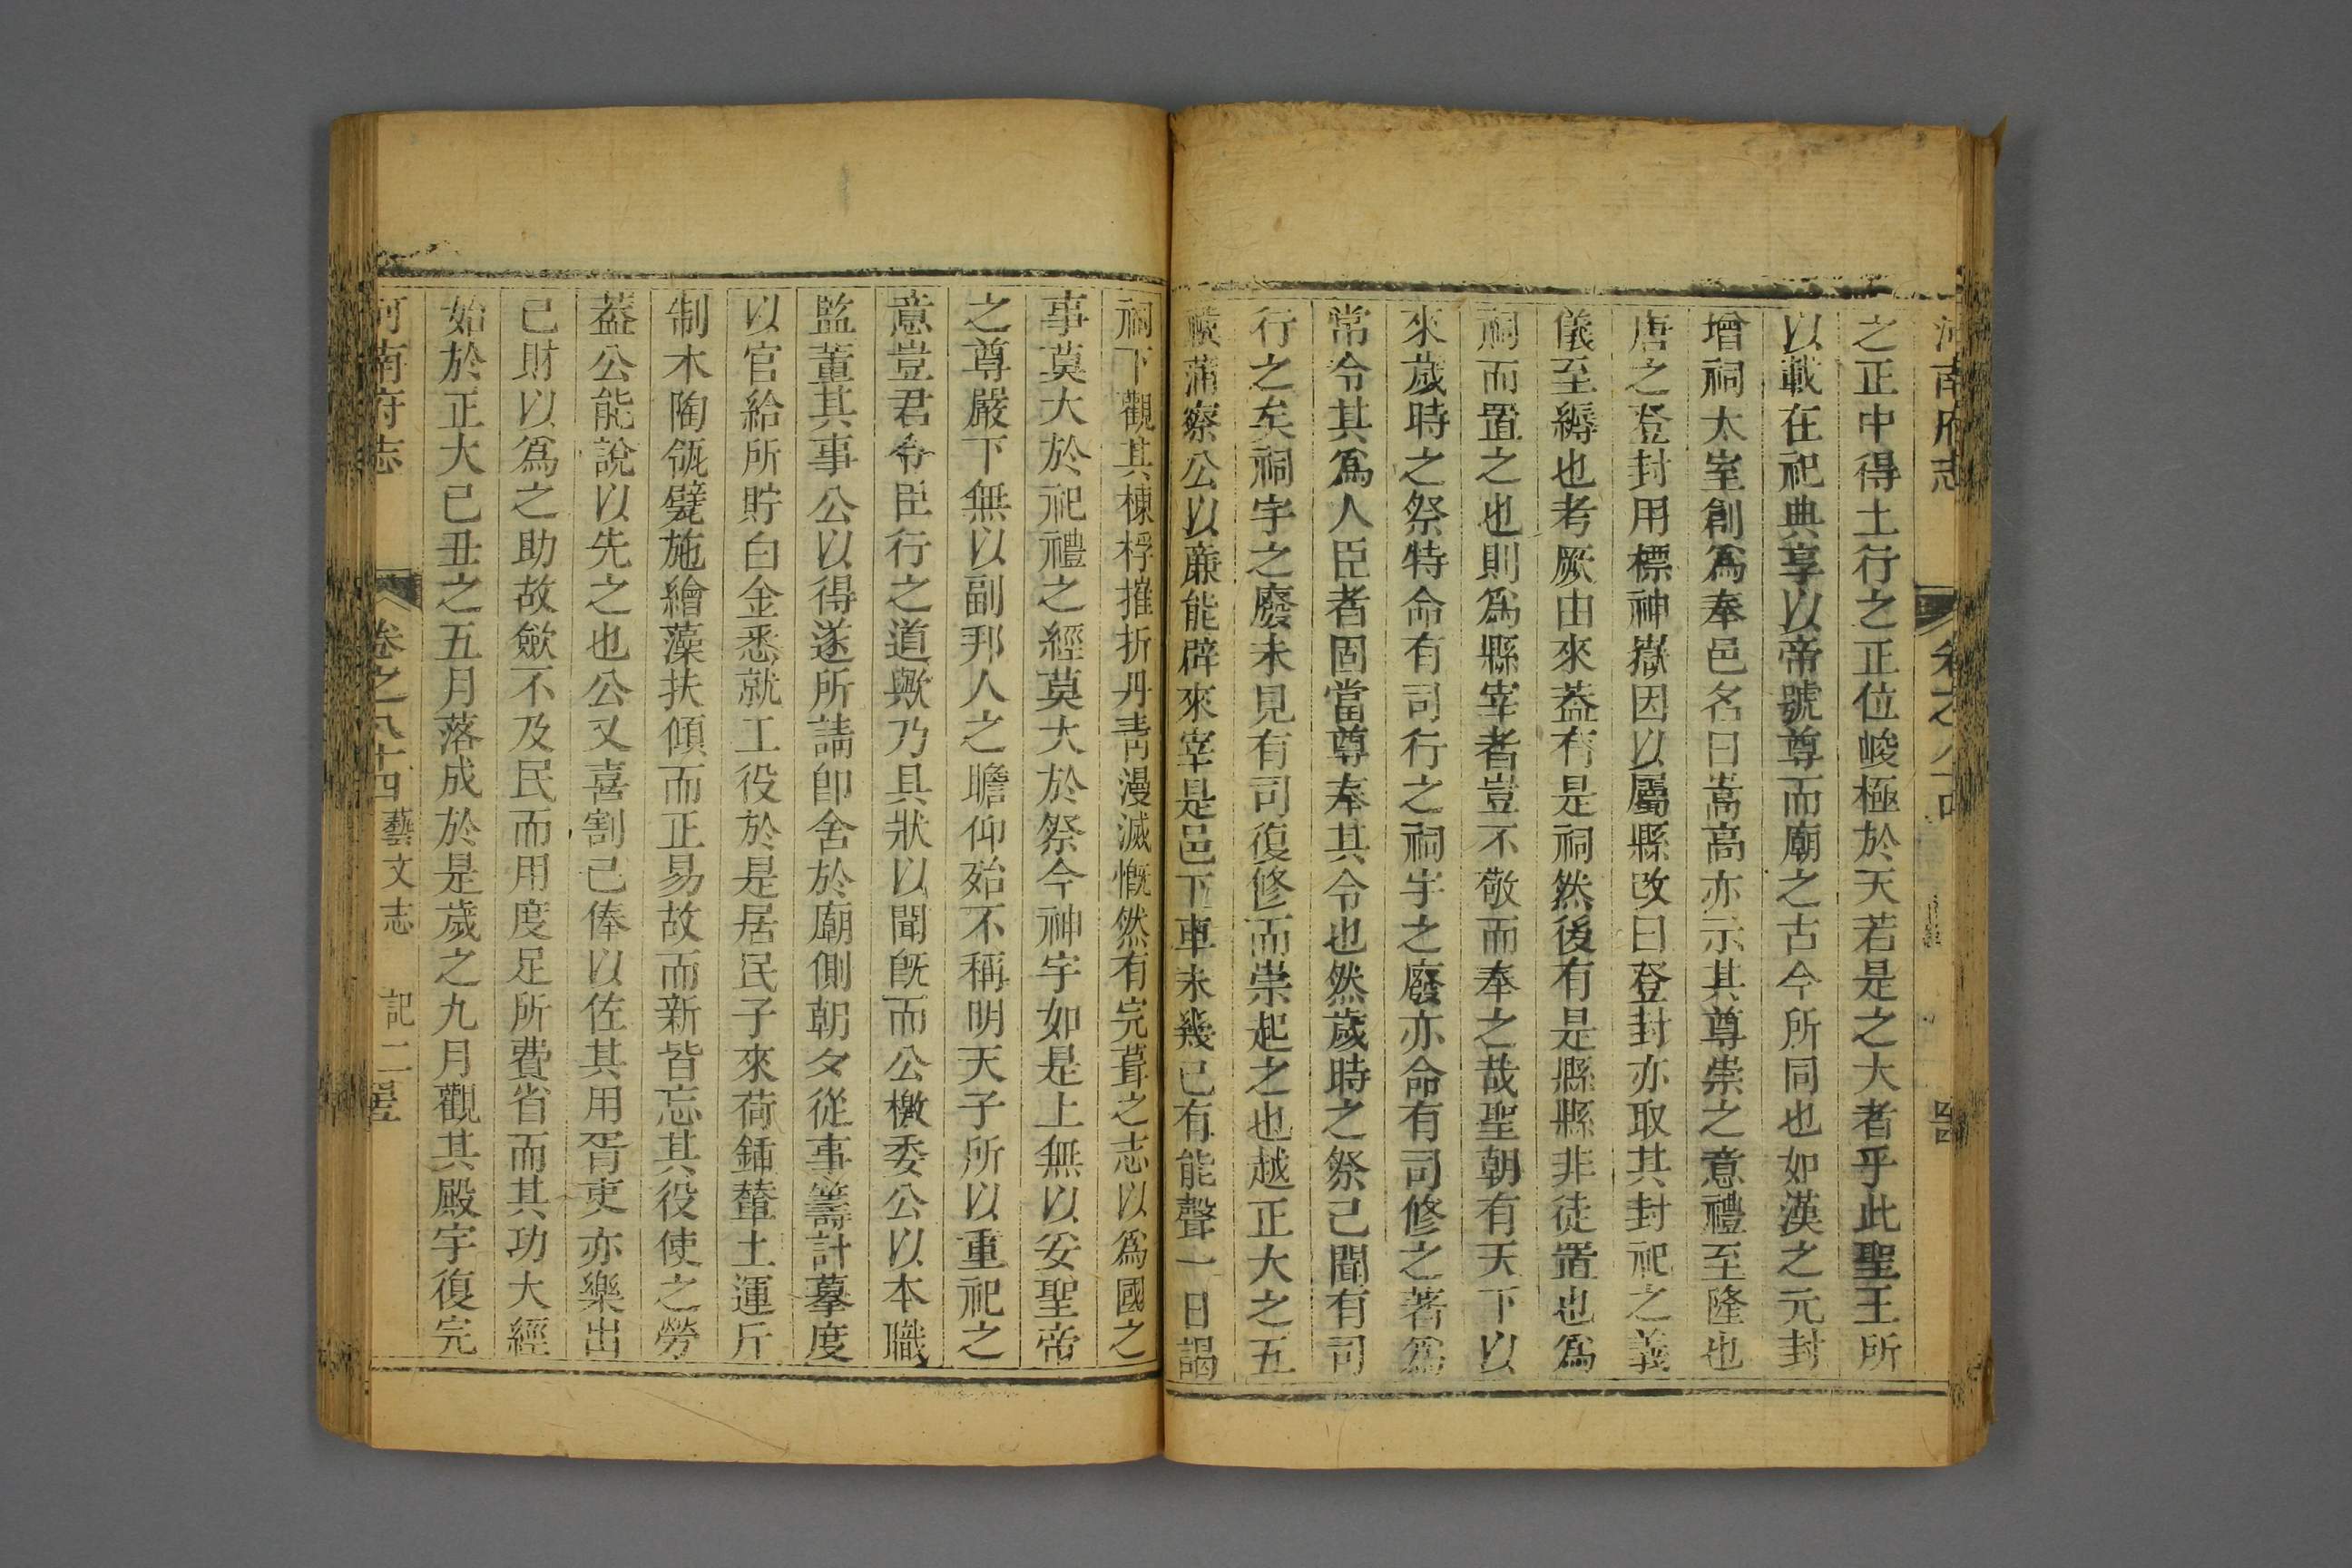 河南府志 卷之八十四
之正中得土行之正位峻極於天若是之大者乎此聖王所
以載在祀典享以帝號尊而廟之古今所同也如漢之元封
增祠太室創爲奉邑名曰嵩高亦示其尊崇之意禮至隆也
唐之登封用標神嶽因以屬縣改曰登封亦取其封祀之義
儀至縟也考厥由來葢有是祠然後有是縣縣非徒置也爲
祠而置之也則爲縣宰者豈不敬而奉之哉聖朝有天下以
來歲時之祭特命有司行之祠宇之廢亦命有司修之著爲
常令其爲人臣者固當尊奉其令也然歲時之祭己聞有司
行之矣祠宇之廢未見有司復修而崇起之也越正大之五
蒲察公以廉能辟來宰是邑下車未幾已有能聲一日謁
祠下觀其棟桴摧折丹青漫滅慨然有完葺之志以爲國之
事莫大於祀禮之經莫大於祭今神宇如是上無以妥聖帝
之尊嚴下無以副邦人之瞻仰殆不稱明天子所以重祀之
意豈君令臣行之道歟乃具狀以聞旣而公檄委公以本職
監董其事公以得遂所請卽舍於廟側朝夕從事籌計摹度
以官給所貯白金悉就工役於是居民子來荷鍤輦土運斤
制木陶瓴甓施繪藻扶傾而正易故而新皆忘其役使之勞
葢公能說以先之也公又喜割己俸以佐其用胥吏亦樂出
己財以爲之助故歛不及民而用度足所費省而其功大經
始於正大己丑之五月落成於是歲之九月觀其殿宇復完
河南府志 卷之八十四藝文志 記二